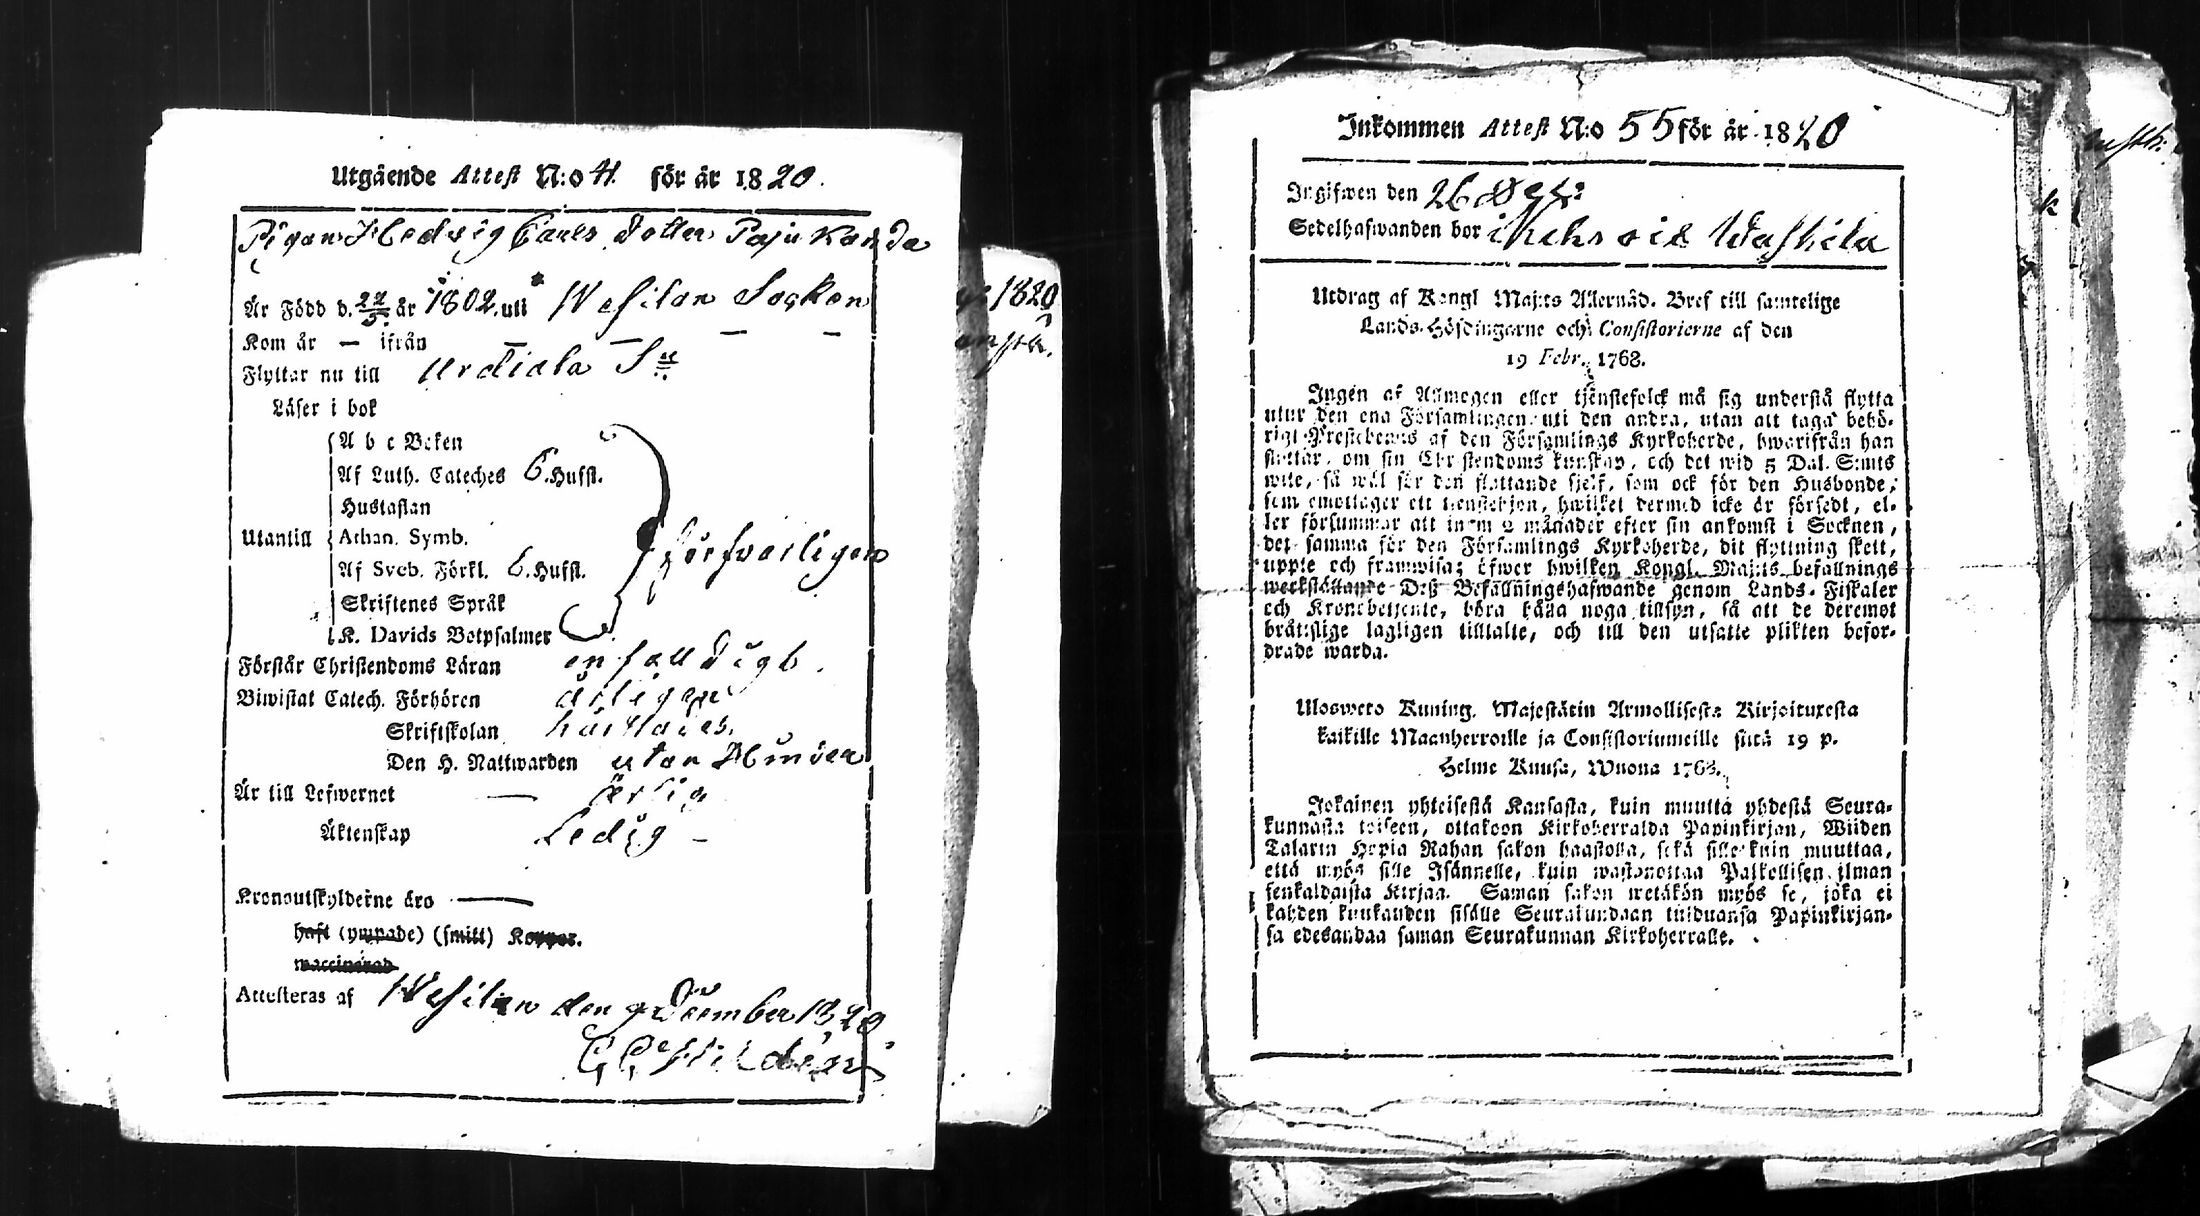 Utgående Attest N:o 41. för år 1820.
Pigan Hedvig Carls Dotter Pajukanda
Är Född d. 22/5. år 1802. uti Wesilax Socken
Kom år — ifrån — — — —
Flyttar nu till Urdiala Sn
Läser i bok
A b c Boken
Af Luth. Cateches 6. Hufst.
Hustaflan
Utantill Athan. Symb. försvarligen
Af Sveb. Förkl. 6. Hufst.
Skriftenes Språk
K. Davids Botpsalmer
Förstår Christendoms Läran enfalldigt.
Biwistat Catech. Förhören årligen
Skriftskolan
Den H. Nattwarden utan Hinder
Är till Lefwernet — ärlig
Äktenskap Ledig —
Kronoutskylderne äro —
haft (ympade) (smitt) Koppor.
waccinerad
Attesteras af Wesilax den 9 December 1820
Inkommen Attest N:o 55 för år 1820
Ingifwen den 26 Dec:
Sedelhafwanden bor i
Utdrag af Kongl Maj:ts Allernåd. Bref till samtelige
Lands-Höfdingarne och Consistorierne af den
19 Febr. 1768.
Ingen af Allmogen eller tjenstefolck må sig understå flytta
utur den ena Församlingen uti den andra, utan att taga behö-
rigt Prestebewis af den Församlings Kyrkoherde, hwarifrån han
flyttar, om sin Christendoms kunskap, och det wid 5 Dal. S:mts
wite, så wäl för den flyttande sjelf, som ock för den Husbonde,
som emottager ett tienstehjon, hwilket dermed icke är försedt, el-
ler försummar att inom 2 månader efter sin ankomst i Socknen,
det samma för den Församlings Kyrkoherde, dit flyttning skett,
uppte och framwisa; öfwer hwilken Kongl. Maj:ts befallnings
werkställande Deß Befallningshafwande genom Lands-Fiskaler
och Kronobetjente, böra hålla noga tillsyn, så att de deremot
bråttslige lagligen tilltalte, och till den utsatte plikten befor-
drade warda.
Uloswето Kuning. Majestätin Armollisesta Kirjoituxesta
kaikille Maanherroille ja Consistoriumeille siitä 19 p.
Helme Kuusa, Wuona 1768.
Jokainen yhteisestä Kansasta, kuin muutta yhdestä Seura-
kunnasta toiseen, ottakoon Kirkoherralda Papinkirjan, Wiiden
Talarin Hopia Rahan sakon haastolla, sekä sille kuin muuttaa,
että myös sille Isännelle, kuin wastanottaa Palkollisen ilman
senkaldaista Kirjaa. Saman sakon wetäkön myös se, joka ei
kahden kuukauden sisälle Seurakundaan tulduansa Papinkirjan-
sa edesandaa saman Seurakunnan Kirkoherralle.
1820